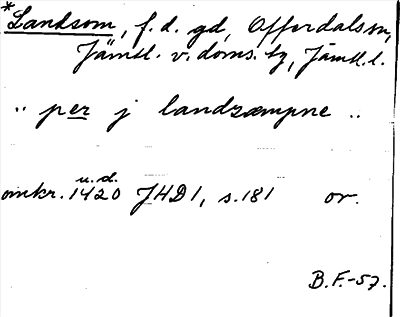 *Landsom, f.d. gd, Offerdals sn,
Jämtl. v. doms. tg, Jämtl. l.
.. per j landzæmpne ..
u.d.
omkr. 1420 JHD1, s. 181 or.
B.F.-57.